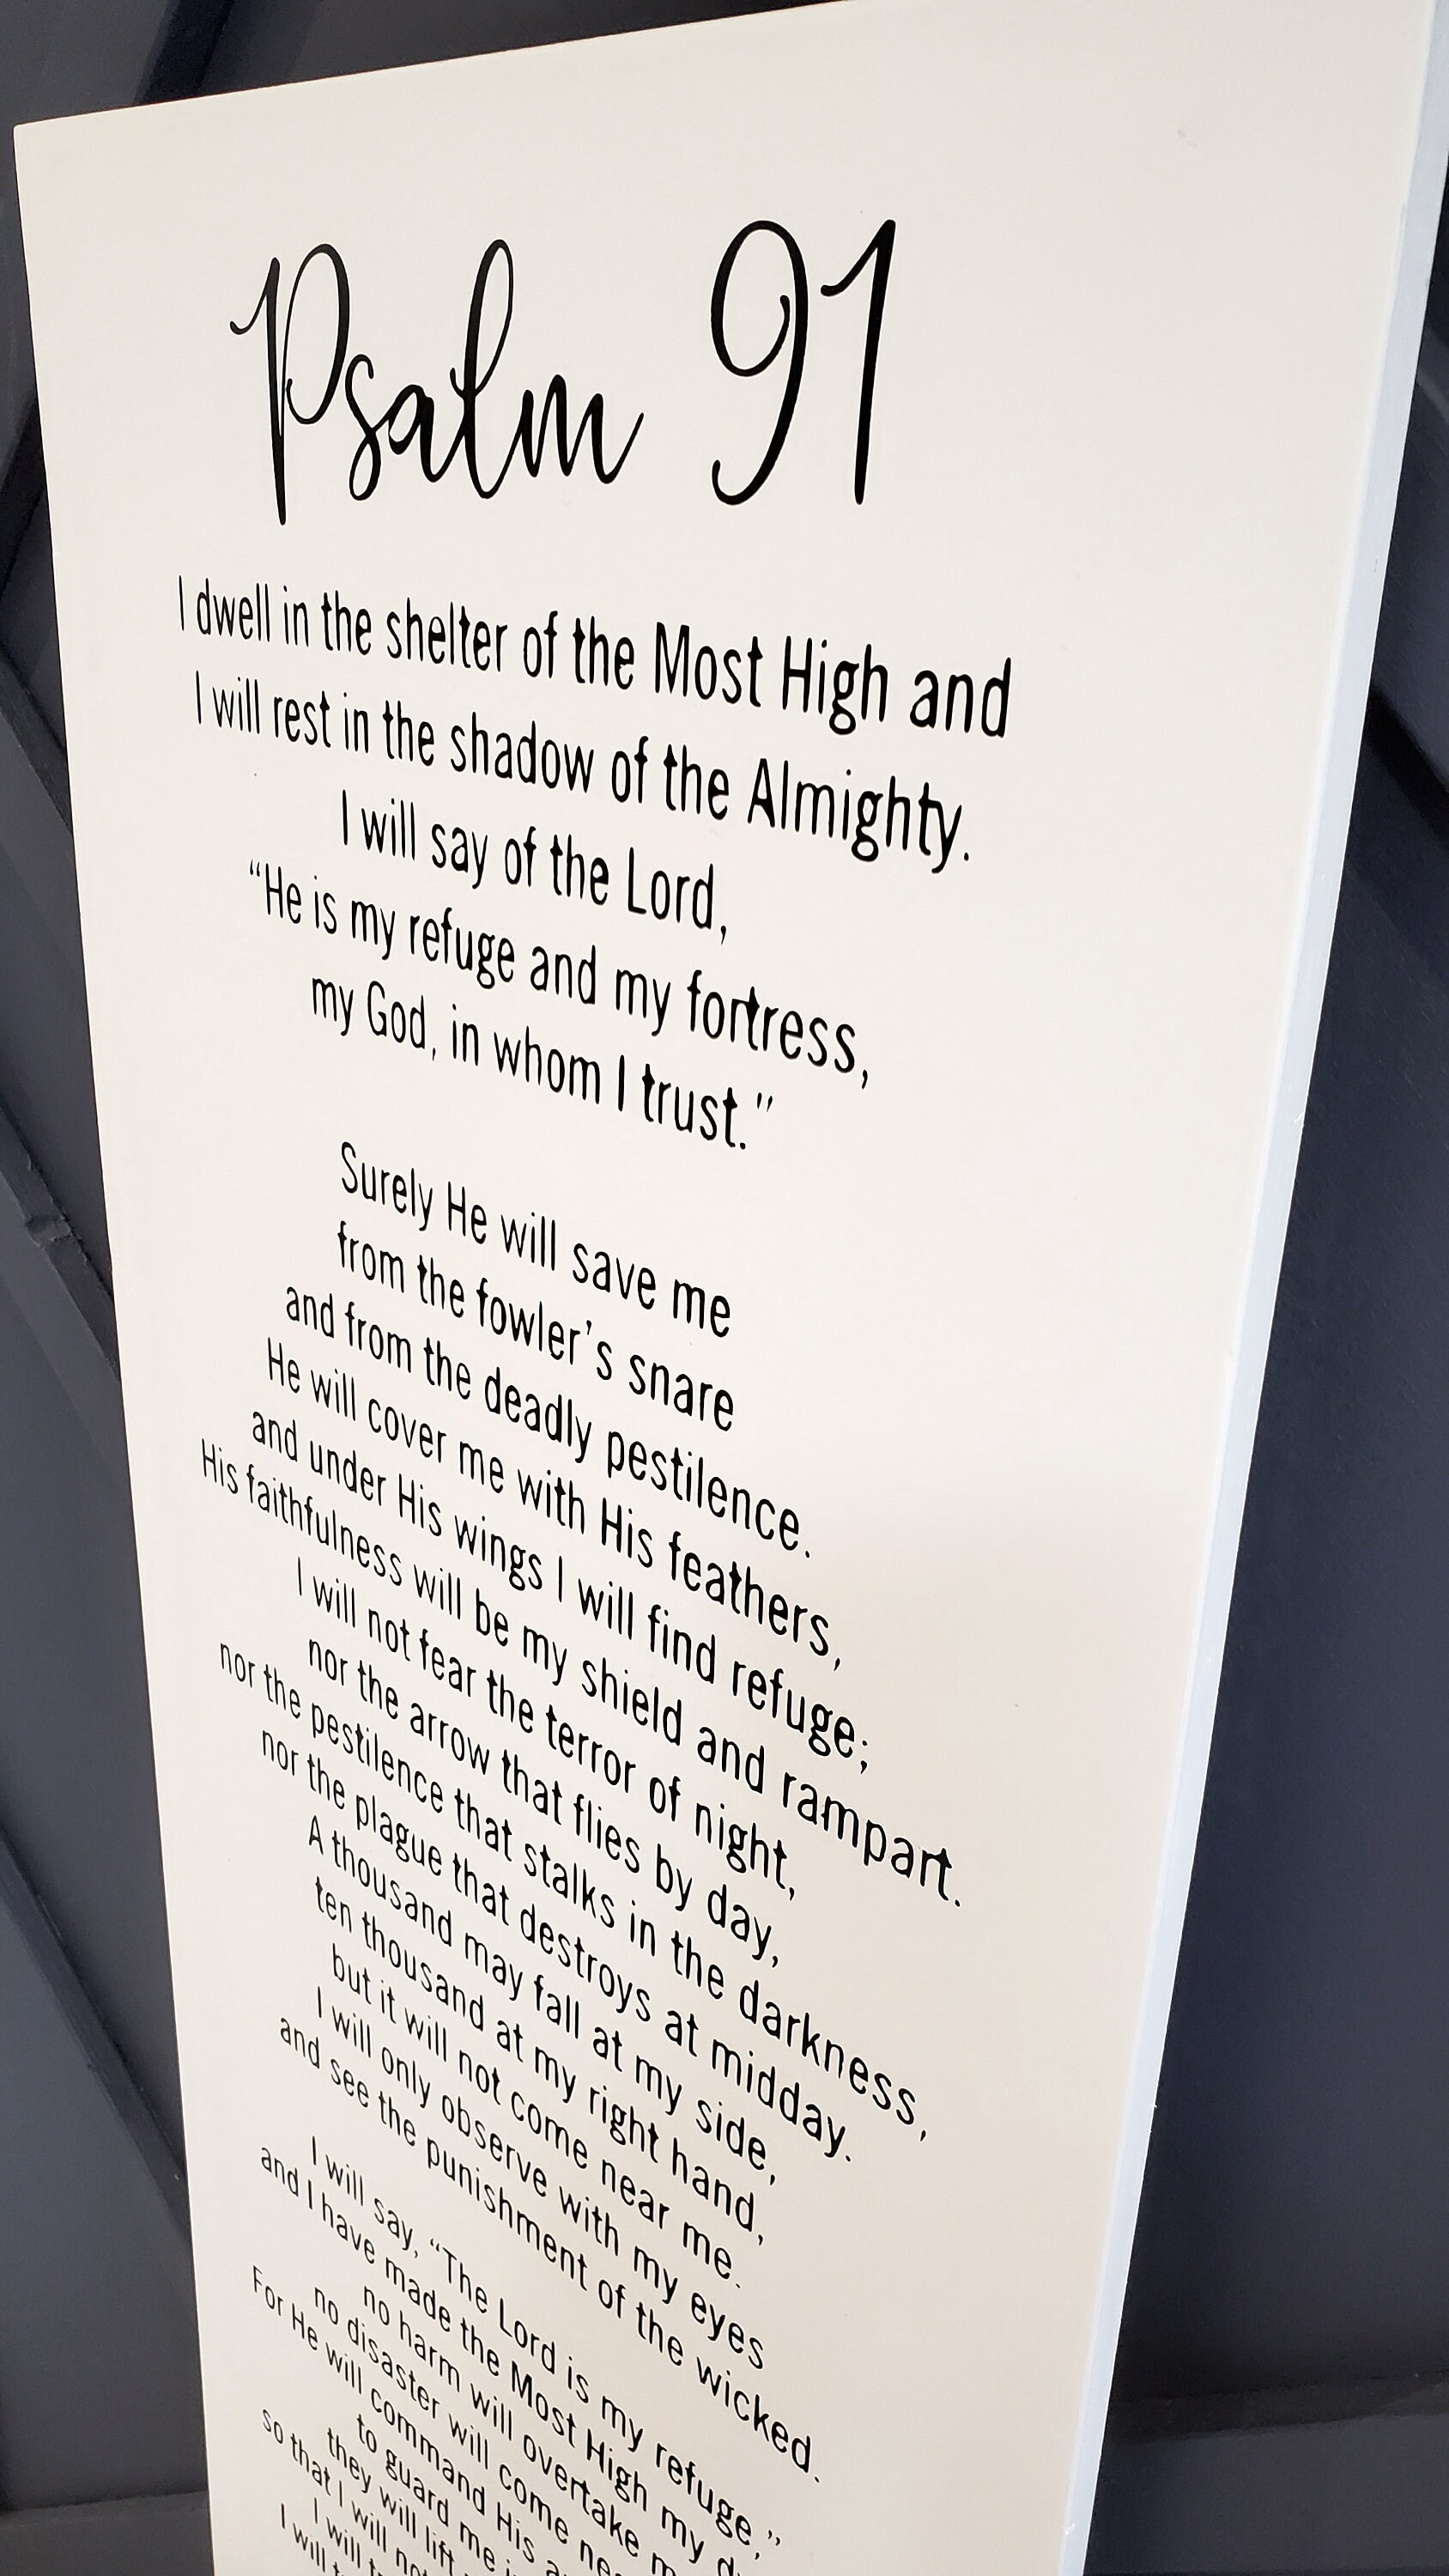 Psalm 91
I dwell in the shelter of the Most High and
I will rest in the shadow of the Almighty.
I will say of the Lord,
“He is my refuge and my fortress,
my God, in whom I trust.”
Surely He will save me
from the fowler's snare
and from the deadly pestilence.
He will cover me with His feathers,
and under His wings I will find refuge;
His faithfulness will be my shield and rampart.
I will not fear the terror of night,
nor the arrow that flies by day,
nor the pestilence that stalks in the darkness,
nor the plague that destroys at midday.
A thousand may fall at my side,
ten thousand at my right hand,
but it will not come near me.
I will only observe with my eyes
and see the punishment of the wicked.
I will say, “The Lord is my refuge,”
and I have made the Most High my
no harm will overtake
no disaster will come
For He will command His
to guard me
they will lift
so that I will not
I will
I will